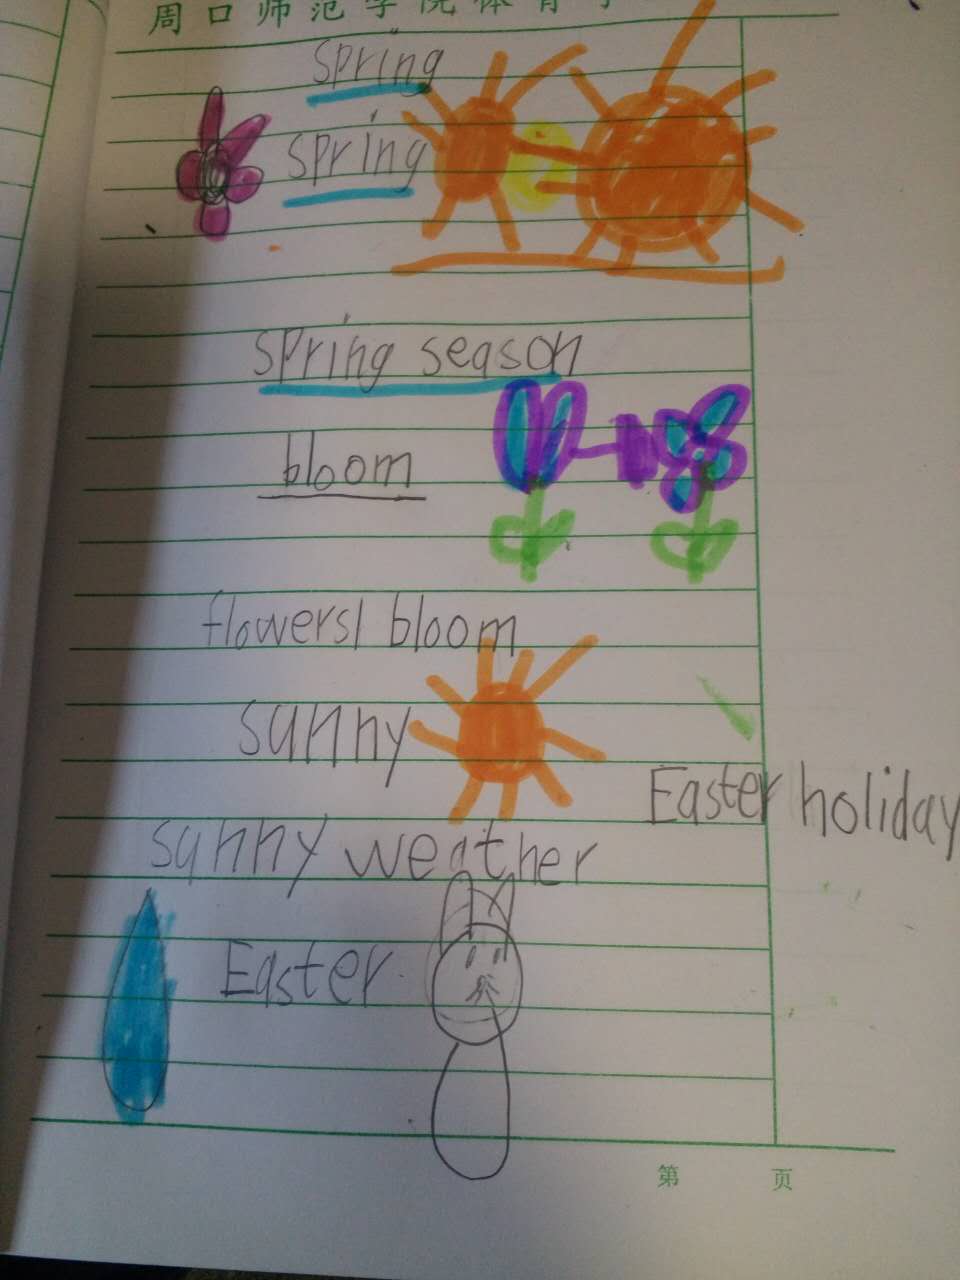 周口师范学院体育
spring
spring
spring season
bloom
flowersl bloom
sunny
Easter holiday
sunny weather
Easter
第 页